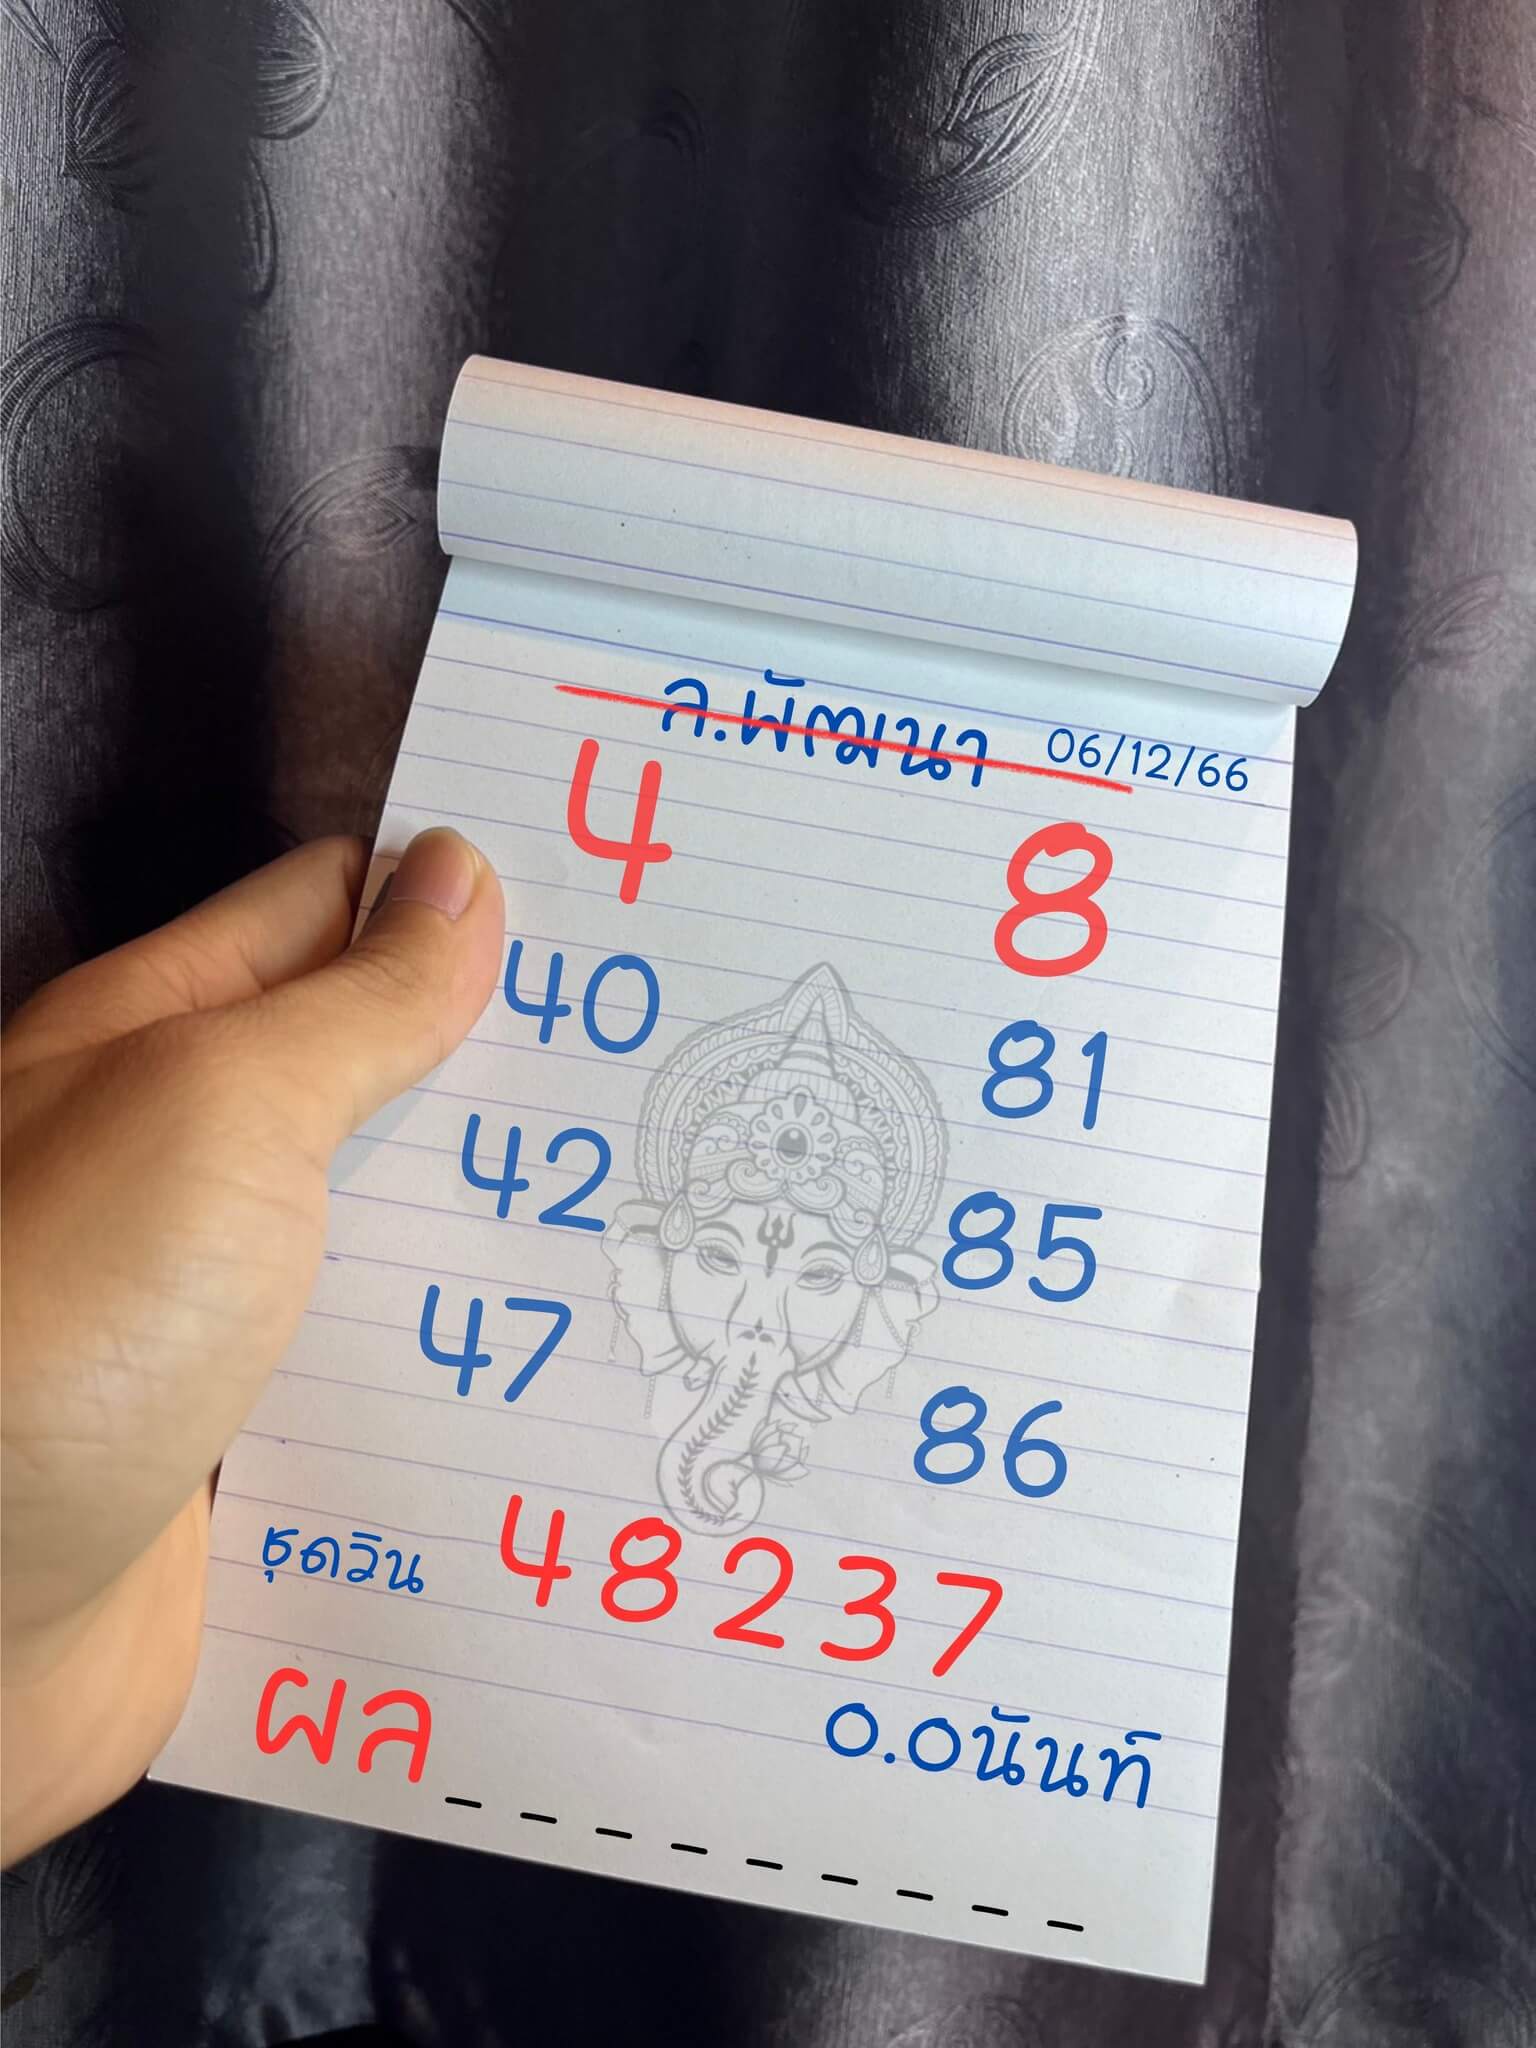 ล.พัฒนา 06/12/66
4 8
40 81
42 85
47 86
ชุดวิน 48237
ผล _ _ _ _ _ _ _ _ _
อ.อนันท์